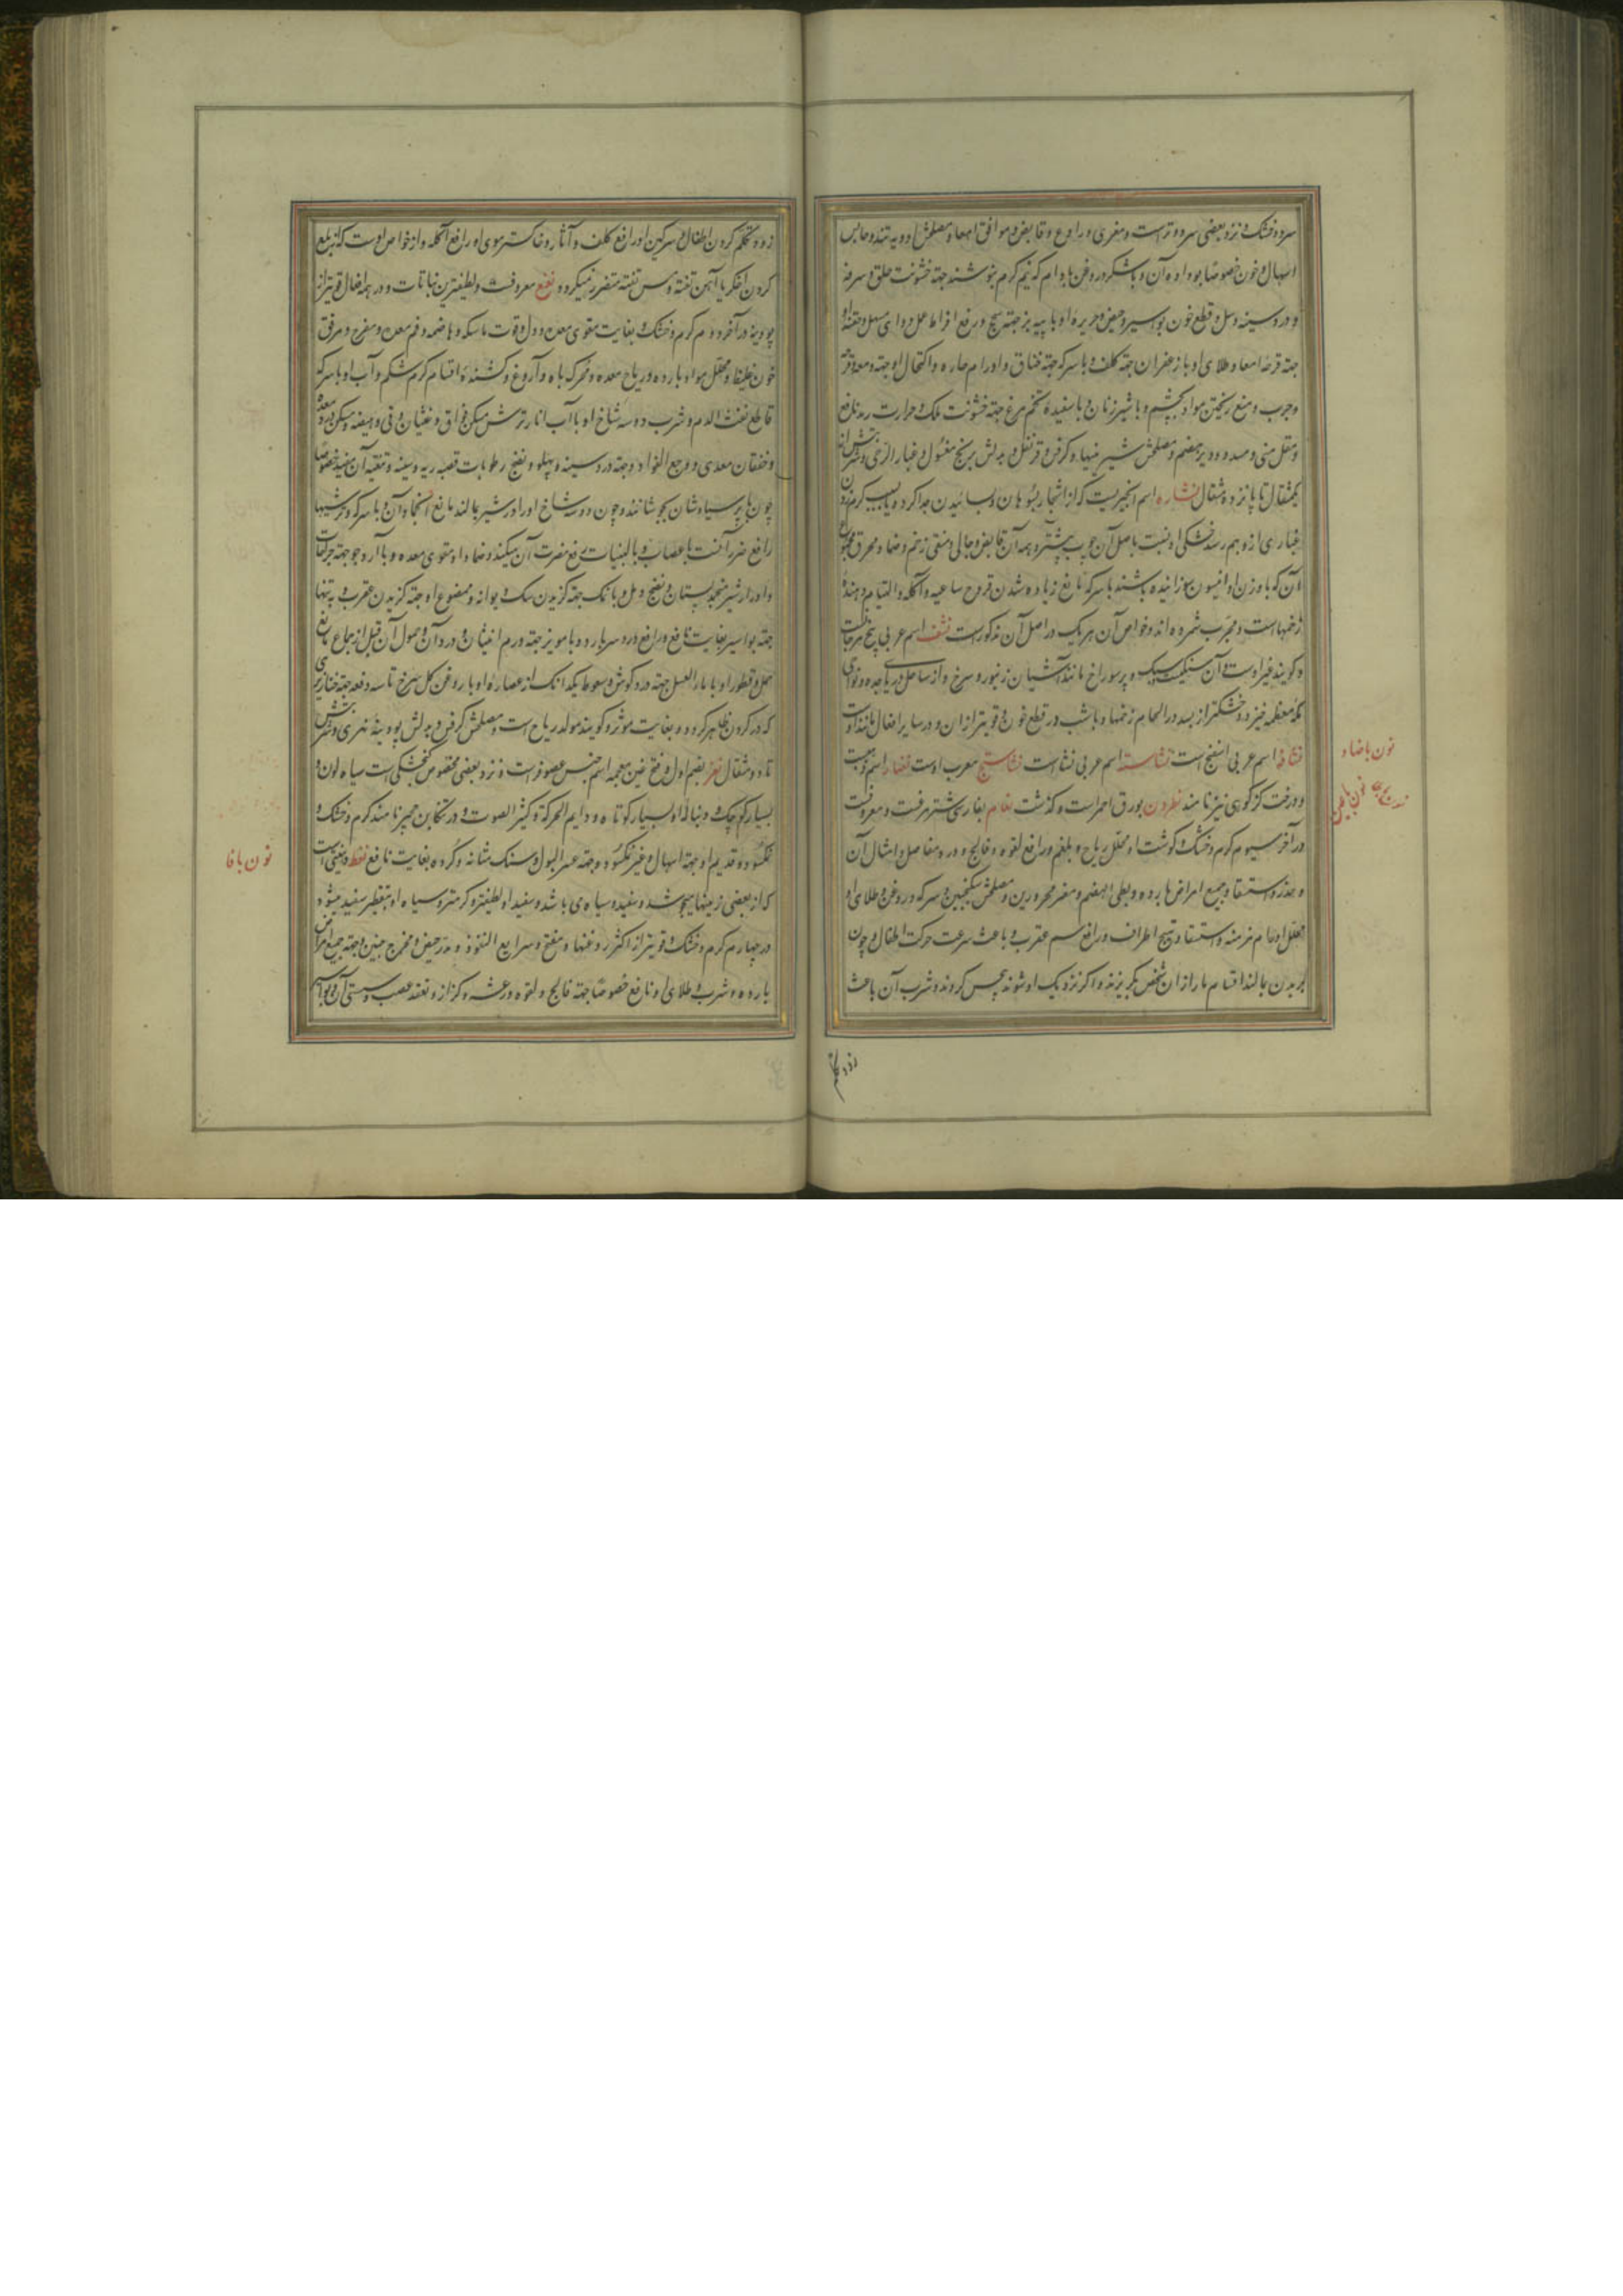 سرد و خشک و نزد بعضی سرد و تر است و مغری و رادع و قابض و موافق امعا و مصلحش ادویه تند و حابس
اسهال و خون خصوصا بو داده آن و با شکر و روغن بادام که نیم گرم بنوشند جهة خشونت حلق و سرفه
و درد سینه و سل و قطع خون بواسیر و حیض و حریره او با پیه بز جهة سحج و رفع افراط عمل دوای مسهل و حقنه او
جهة قرحه امعا و طلای او با زعفران جهة کلف و با سرکه جهة خناق و اورام حاره و اکتحال او جهة دمعه و قرحه
و جرب و منع ریختن مواد بچشم و با شیر زنان و با سفیده تخم مرغ جهة خشونت پلک و حرارت رمد نافع
و مقلل منی و مسدد و دیر هضم و مصلحش شیرینیها و کرفس و قرنفل و بدلش برنج مغسول و غبار الرحی و قدر شربتش از
یکمثقال تا پانزده مثقال نشاره اسم انچیزیست که از اشجار بسوهان و بسائیدن جدا کردد یا بسبب کرم زدن
غباری ازو بهم رسد خشکی او نسبت باصل آن چوب بیشتر و همه آن قابض و جالی و منقی زخم و ضماد محرق مجموع
آن که با وزن او انیسون سوزانیده باشند با سرکه مانع زیاده شدن قروح ساعیه و آکله و التیام دهنده
زخمهاست و مجرب شمرده اند و خواص آن هر یک در اصل آن مذکور است نشف اسم عربی بیخ مرجان است
و گویند غیر اوست و آن سنگیست سبک و پر سوراخ مانند آشیان زنبور و سرخ و از ساحل دریای جده و نواحی
مکه معظمه خیزد و خشکتر از بسد در الحام زخمها و با شب در قطع خون قویتر ازان و در سایر افعال مانند اوست
نشافه اسم عربی اسفنج است نشاسته اسم عربی نشا است نشاستج معرب اوست نضار اسم ذهبست
و درخت گز کوهی نیز نامند نطرون بورق احمر است و گذشت نعام بفارسی شتر مرغست و معروفست
در آخر سیوم گرم و خشک و گوشت او محلل ریاح و بلغم و رافع لقوه و فالج و درد مفاصل و امثال آن
و خدر و استسقا و جمیع امراض بارده و بطی الهضم و مضر محرورین و مصلحش سکنجبین و سرکه و روغن و طلای او
محلل اورام مزمنه و استسقا و تهیج اطراف و رافع سم عقرب و باعث سرعت حرکت اطفال و چون
بر بدن بمالند اقسام مار ازان شخص بگریزند و اگر نزدیک او شوند بیحس گردند و شرب آن باعث
زود تکلم
نون با ضاد
نون با طا
زود تکلم کردن اطفال و سرگین او رافع کلف و آثار و خاکستر موی او رافع آکله و از خواص اوست که ببلع
کردن اخگر یا آهن تفته و مس تفته متضرر نمیگردد نعنع معروفست و لطیفترین نباتات و در همه افعال قویتر از
پودینه در آخر دوم گرم و خشک و بغایت مقوی معده و دل و قوت ماسکه و هاضمه و فم معده و مفرح و مرقق
خون غلیظ و محلل مواد بارده و ریاح معده و محرک باه و آروغ و کشنده اقسام کرم شکم و آب او با سرکه
قاطع نفث الدم و شرب دو سه شاخ او با آب انار ترش مسکن فواق و غثیان و قی و هیضه و مسکن درد معده
و خفقان معدی و وجع الفواد و جهة درد سینه و پهلو و نضج رطوبات قصبه ریه و سینه و تنقیه آن مفید خصوصا
چون با پر سیاوشان بجوشانند و چون دو سه شاخ او را در شیر بمالند مانع انجماد آن و با سرکه و ترشیها
رافع ضرر آنست باعصاب و با لبنیات رفع مضرت آن میکند و ضماد او مقوی معده و با آرد جو جهة جراحات
و ادرار شیر منجمد پستان و نضج دمل و با نمک جهة گزیدن سک دیوانه و ممضوغ او جهة گزیدن عقرب و بتنها
جهة بواسیر بغایت نافع و رافع درد سر بارد و با مویز جهة ورم انثیان و درد آن و حمول آن قبل از جماع مانع
حمل و قطور او با ماء العسل جهة درد گوش و سعوط یکدانک از عصاره او با روغن گل سرخ تا سه دفعه جهة خنازیری
که در گردن ظاهر گردد بغایت موثر و گویند مولد ریاح است و مصلحش کرفس و بدلش پودینه نهری و قدر شربتش
تا دو مثقال نغر بضم اول و فتح غین معجمه اسم جنس عصفور است و نزد بعضی مخصوص گنجشکی است سیاه لون و
بسیار کوچک و دنباله او بسیار کوتاه و دایم الحرکة و کثیر الصوت و در تنکابن نامند گرم و خشک و
نمکسود و قدید او جهة اسهال و غیر نمکسود و جهة عسر البول و سنک مثانه و گرده بغایت نافع نفط روغنی است
که از بعضی زمینها میجوشد و سفید و سیاه می باشد و سفید او لطیفتر و گرمتر و سیاه او بتقطیر سفید میشود
در چهارم گرم و خشک و قویتر از اکثر روغنها و مفتح و سریع النفوذ و مدر حیض و مخرج جنین و جهة جمیع امراض
بارده و شرب و طلای او نافع خصوصا جهة فالج و لقوه و رعشه و کزاز و تعقد عصب و سستی آن و بواسیر
نون با فا